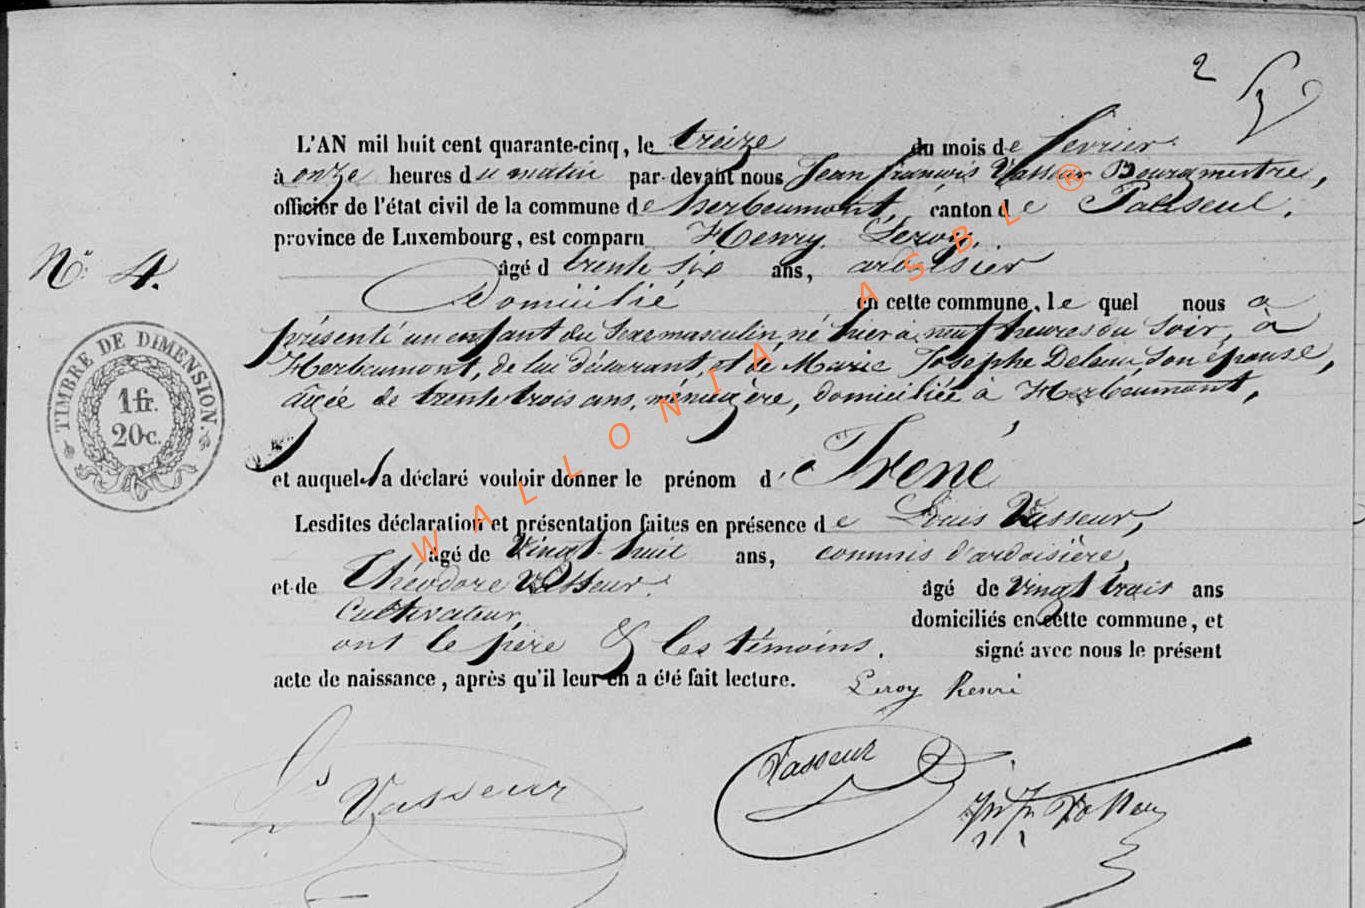 2
L'AN mil huit cent quarante-cinq, le treize du mois de fevrier
à onze heures du matin par devant nous Jean françois Vasseur Bourgmestre,
officier de l'état civil de la commune de herbeumont, canton de Paliseul,
province de Luxembourg, est comparu Henry Leroy,
N° 4.
âgé d trente six ans, ardoisier
domicilié en cette commune, lequel nous a
présenté un enfant du sexe masculin, né hier à huit heures du soir, à
Herbeumont, de lui déclarant, et de Marie Josephe son épouse,
âgée de trente trois ans, ménagère, domiciliée à Herbeumont,
TIMBRE DE DIMENSION.
1 fr.
20 c.
et auquel il a déclaré vouloir donner le prénom d'e Irené
Lesdites déclaration et présentation faites en présence de Louis Vasseur,
âgé de vingt-huit ans, commis d'ardoisière,
et de Théodore Vasseur, âgé de vingt trois ans
Cultivateur, domiciliés en cette commune, et
ont le père & les témoins. signé avec nous le présent
acte de naissance, après qu'il leur en a été fait lecture.
Leroy Henri
Ls Vasseur
Vasseur
Vasseur
WALLONIA ASBL ®